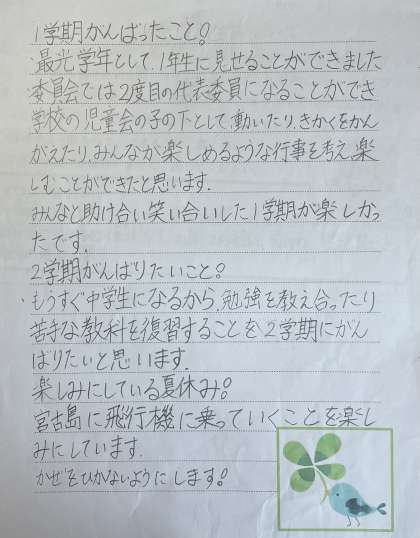 1学期がんばったこと!
最光学年として、1年生に見せることができました
委員会では2度目の代表委員になることができ
学校の児童会の子の下として動いたり、きかくをかん
がえたり、みんなが楽しめるような行事を考え、楽
しむことができたと思います。
みんなと助け合い笑い合いした1学期が楽しかっ
たです。
2学期がんばりたいこと!
もうすぐ中学生になるから、勉強を教え合ったり
苦手な教科を復習することを2学期にがん
ばりたいと思います。
楽しみにしている夏休み!
宮古島に飛行機に乗っていくことを楽し
みにしています。
かぜをひかないようにします!